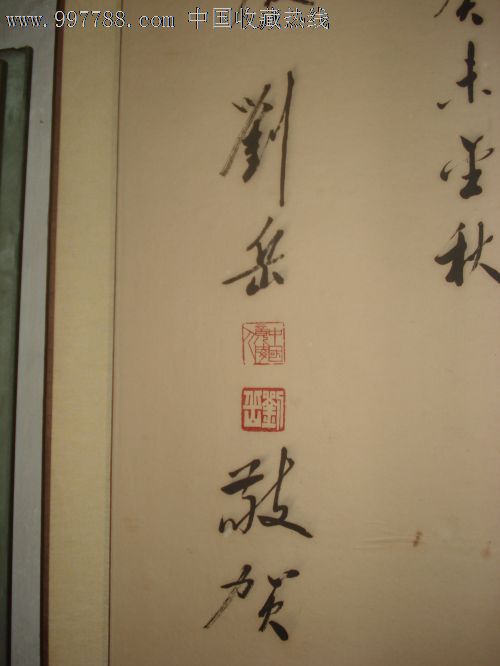 www.997788.com 中国收藏热线
癸未金秋
劉岳
中國
劉岳
敬贺